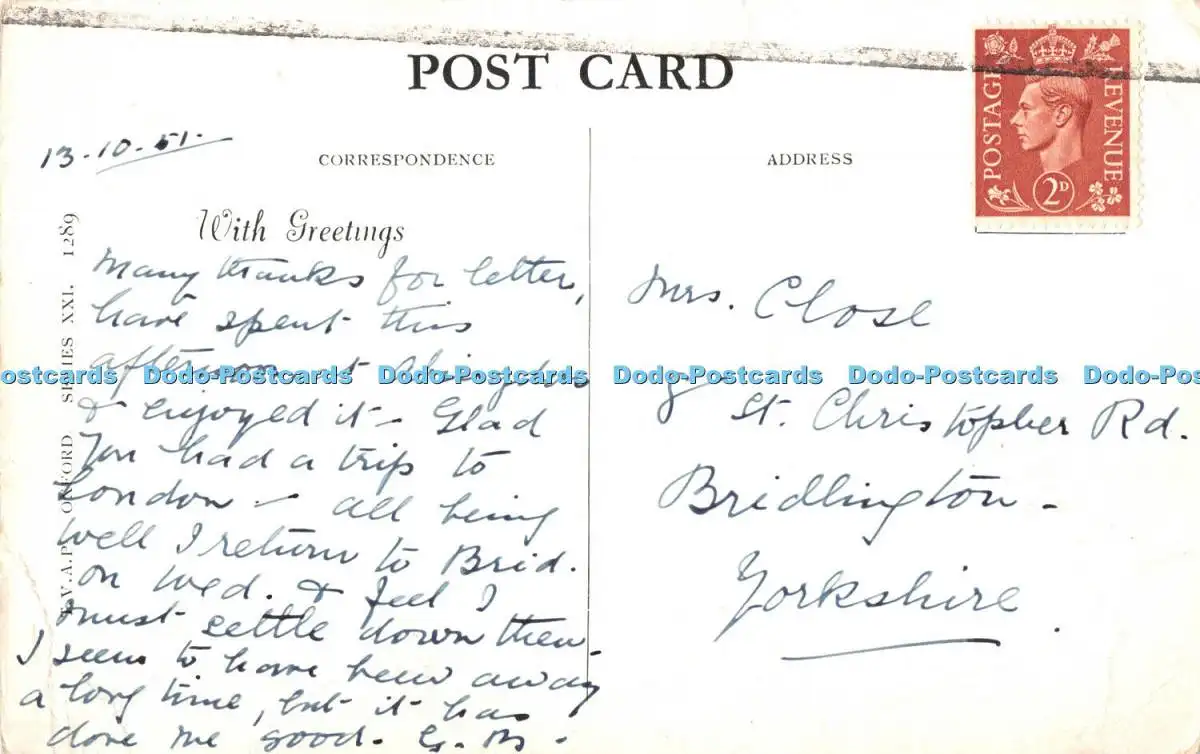 POST CARD
13-10-51-
CORRESPONDENCE
With Greetings
Many thanks for letter,
have spent this
afternoon at
& enjoyed it - Glad
You had a trip to
London - all being
well I return to Brid.
on wed. & feel I
must settle down then.
I seem to have been away
a long time, but it has
done me good. G. M.
V.A.P. OXFORD SERIES XXI. 1289
ADDRESS
POSTAGE REVENUE
2D
Mrs. Close
St. Christopher Rd.
Bridlington -
Yorkshire.
ostcards Dodo-Postcards Dodo-Postcards Dodo-Postcards Dodo-Postcards Dodo-Postc